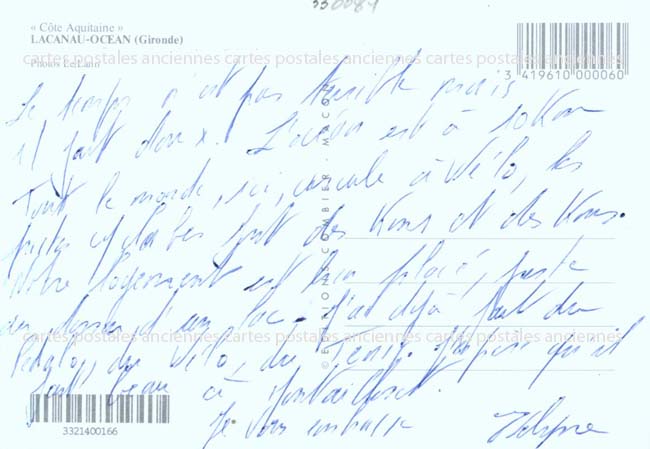 330084
« Côte Aquitaine »
LACANAU-OCEAN (Gironde)
cartes postales anciennes cartes postales anciennes cartes postales anciennes
3 419610 000060
Le temps n'est pas terrible mais
il fait doux. L'océan est à 10 Km
Tout le monde, ici, circule à Vélo, les
pistes cyclables font des Kms et des Kms.
Notre logement est bien placé, juste
au dessus d'un lac. J'ai déjà fait du
Pédalo, du Vélo, du Tennis. J'espère qu'il
fait beau à
Je vous embrasse
EDITIONS COMBIER MACON
3321400166
cartes postales anciennes cartes postales anciennes cartes postales anciennes